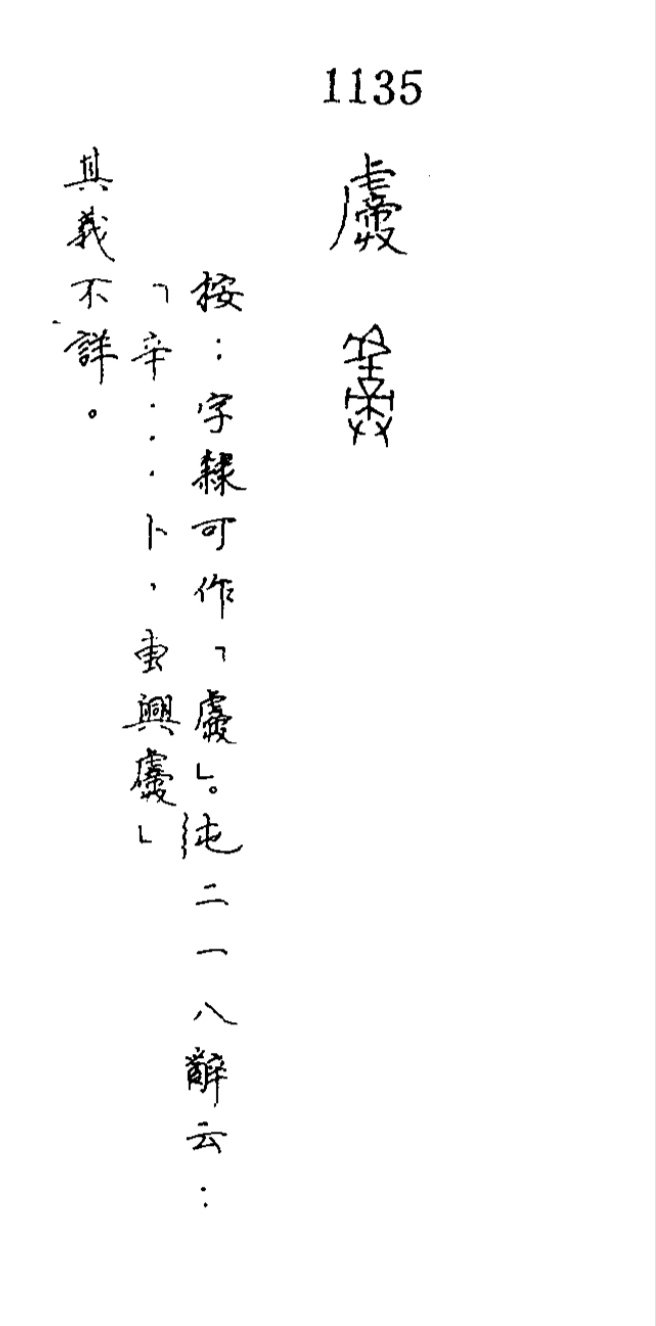 1135
按：字隸可作「」。屯二一八辭云：
「辛...卜，叀興」
其義不詳。